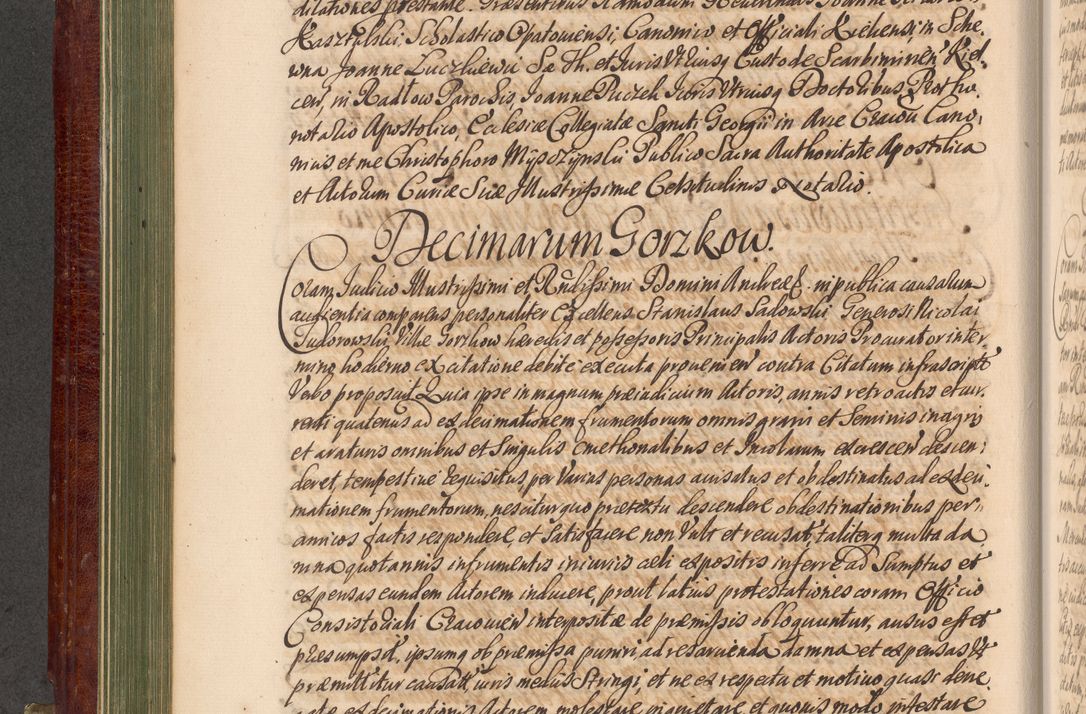 dilationes præstante. Præsentibus Admodum Reverendis Joanne
Kaszynski, Scholastico Opatoviensi, Canonico et Officiali Kielcensi in Sche,
wna Joanne Zuczkiewic Sæ Th. et Juris Vtriusq Custode Scarbimirien Kiel,
cen, in Radłow Parochis, Joanne Puczek Juris Vtriusq Doctoribus, Protho,
notario Apostolico, Ecclesiæ Collegiatæ Sancti Georgii in Arce Cracou Cano,
nicis et me Christophoro Mysszynski Publico Sacra Authoritate Apostolica
et Actorum Curiæ Suæ Illustrissimæ Celsitudinis Notario.
Decimarum Gorzkow.
Coram Judicio Illustrissimi et Rndissimi Domini Andreæ in publica causarum
audientia comparens personaliter Excellens Stanislaus Sadowski Generosi Nicolai
Tudorowski, Villæ Gorzkow hæredis et possessoris Principalis Actoris Procurator in ter,
mino hodierno ex citatione debite executa provenien contra Citatum infrascript
Verbo proposuit, Quia ipse in magnum præiudicium Actoris, annis retroactis et cur,
renti quatenus ad exdecimationem frumentorum omnis grani et Seminis in agris
et araturis omnibus et Singulis Cmethonalibus et Incolarum excrescen descen,
deret, tempestive requisitus per Varias personas avisatus et obdestinatus ad exdeci,
mationem frumentorum, nescitur quo prætextu descendere obdestinationibus per
amicos factis respondere, et Satisfacere non Vult et recusat, taliterq multa da
mna quotannis in frumentis iniuriis aeli expositis inferre ad Sumptus et
expensas eundem Actorem inducere, prout latius protestationes coram Officio
Consistoriali Cracovien interpositæ de præmissis obloquuntur, ausus est et
præsumpsit, ipsumq ob præmissa puniri, ad resarcienda damna et expensas Vt
præmittitur causatas, iuris mediis Stringi, et ne ex respectu et motivo quasi dene,
exdecimationis Actorem molestare inquietare et quovis modo infestare